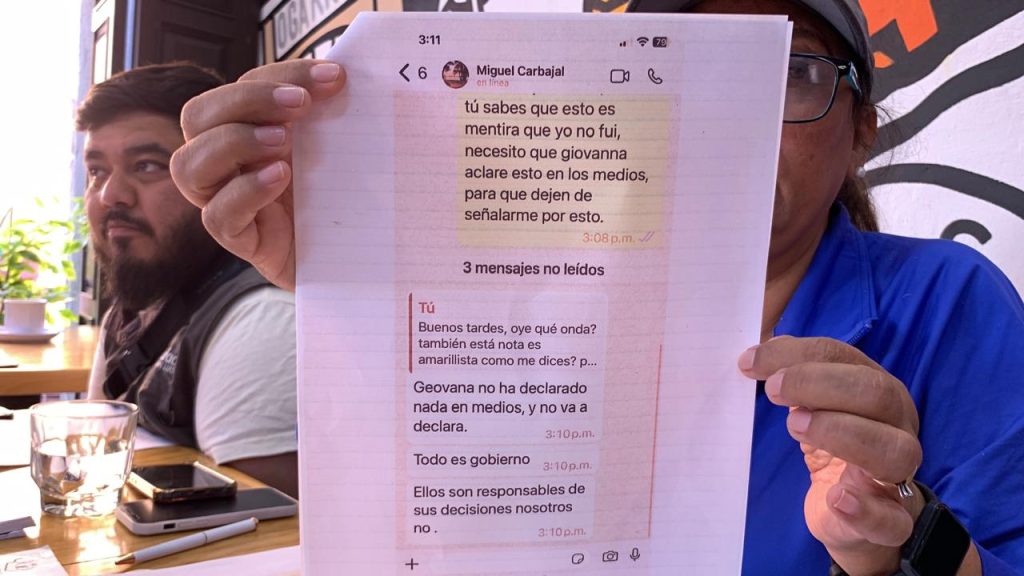 3:11
79
6
Miguel Carbajal
en línea
tú sabes que esto es
mentira que yo no fui,
necesito que giovanna
aclare esto en los medios,
para que dejen de
señalarme por esto.
3:08 p.m.
3 mensajes no leídos
Tú
Buenos tardes, oye qué onda?
también está nota es
amarillista como me dices? p...
Geovana no ha declarado
nada en medios, y no va a
declara.
3:10 p.m.
Todo es gobierno 3:10 p.m.
Ellos son responsables de
sus decisiones nosotros
no .
3:10 p.m.